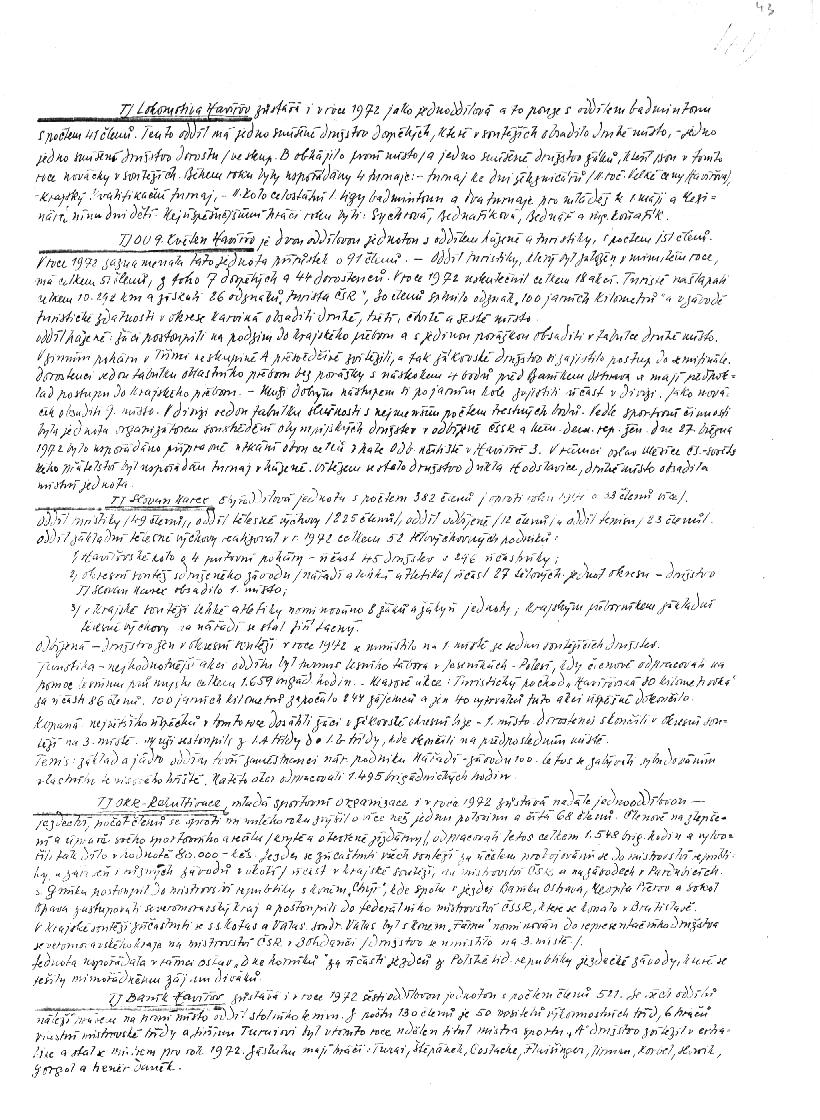 43
TJ Lokomotiva Havířov zůstává i v roce 1972 jako jednooddílová a to pouze s oddílem badmintonu
s počtem 41 členů. Tento oddíl má jedno smíšené družstvo dospělých, které v soutěžích obsadilo druhé místo, - jedno
jedno smíšené družstvo dorostu /ve skup. B obhájilo první místo/ a jedno smíšené družstvo žáků, kteří jsou v tomto
roce nováčky v soutěžích. Během roku byly uspořádány 4 turnaje: - turnaj ke dni železničářů /II. roč. Velké ceny Havířova/,
- krajský kvalifikační turnaj, - II. kolo celostátní I. ligy badmintonu a dva turnaje pro mládež k 1. máji a Mezi-
národnímu dni dětí. Nejúspěšnějšími hráči roku byli: Sychrová, Bednaříková, Bednář a
TJ OU 9. Květen Havířov je dvouoddílovou jednotou s oddílem házené a turistiky, s počtem 151 členů.
V roce 1972 zaznamenala tato jednota přírůstek o 91 členů. - Oddíl turistiky, který byl založen v minulém roce,
má celkem 51 členů, z toho 7 dospělých a 44 dorostenců. V roce 1972 uskutečnil celkem 18 akcí. Turisté našlapali
celkem 10.292 km a získali 26 odznaků "Turista ČSR", 30 členů splnilo odznak "100 jarních kilometrů" a v závodě
turistické zdatnosti v okrese Karviná obsadili druhé, třetí, čtvrté a šesté místo.
Oddíl házené: žáci postoupili na podzim do krajského přeboru a s jedinou porážkou obsadili v tabulce druhé místo.
V zimním poháru v Třinci ve skupině A přesvědčivě zvítězili, a tak žákovské družstvo si zajistilo postup do semifinále.
Dorostenci vedou tabulku oblastního přeboru bez porážky s náskokem 4 bodů před Baníkem Ostrava a mají předpok-
lad postupu do krajského přeboru. - Muži dobrým nástupem si po jarním kole zajistili účast v divizi. Jako nová-
ček obsadili 9. místo. V divizi vedou tabulku slušnosti s nejmenším počtem trestných bodů. Vedle sportovní činnosti
byla jednota organizátorem soustředění olympijských družstev v odbíjené ČSSR a Něm. dem. rep. žen. Dne 27. března
1972 bylo uspořádáno přípravné utkání obou celků v hale Odb. učiliště v Havířově 3. V rámci oslav Měsíce čs.-sověts-
kého přátelství byl uspořádán turnaj v házené. Vítězem se stalo družstvo Dukla Hodslavice, druhé místo obsadila
místní jednota.
TJ Slovan Havíř. 5ti oddílová jednota s počtem 382 členů /oproti roku 1971 o 33 členů více/.
Oddíl turistiky /49 členů/, oddíl tělesné výchovy /225 členů/, oddíl odbíjené /12 členů/ a oddíl tenisu /23 členů/.
Oddíl základní tělesné výchovy realizoval v r. 1972 celkem 52 tělovýchovných podniků:
1/ Havířovské kolo o putovní poháry - účast 45 družstev s 296 účastníky;
2/ okresní soutěž sdruženého závodu /nářadí a lehká atletika/ účast 27 tělových. jednot okresu - družstvo
TJ Slovan obsadilo 1. místo;
3/ v krajské soutěži lehké atletiky nominováno 8 žáků a žákyň jednoty, krajským přeborníkem základní
tělesné výchovy na nářadí se stal Jiří
Odbíjená - družstvo žen v okresní soutěži v roce 1972 se umístilo na 1. místě ze sedmi soutěžících družstev.
Turistika - nejhodnotnější akcí oddílu byl turnus lesního tábora v Jeseníkách, kdy členové odpracovali na
pomoc lesnímu průmyslu celkem 1.659 brigád. hodin. - Masové akce: Turistický pochod "Havířovská 30 kilometrovka"
za účasti 86 členů. 100 jarních kilometrů započalo 244 zájemců a jen 40 vytrvalců tuto akci úspěšně dokončilo.
Kopaná největšího úspěchu v tomto roce dosáhli žáci v žákovské okresní lize - 1. místo. Dorostenci skončili v okresní sou-
těži na 3. místě. Muži sestoupili z I.A třídy do I.B třídy, kde skončili na předposledním místě.
Tenis: základ a jádro oddílu tvoří zaměstnanci nár. podniku Nářadí - závodu 100. Letos se zabývali vybudováním
vlastního tenisového hřiště. Na této akci odpracovali 1.495 brigádnických hodin.
TJ OKR-Rekultivace, mladá sportovní organizace i v roce 1972 zůstává nadále jednooddílovou -
jezdectví, počet členů se oproti minulého roku zvýšil o více než jednu polovinu a čítá 68 členů. Členové na zlepše-
ní a úpravě svého sportovního areálu /kryté a otevřené jízdárny/, odpracovali letos celkem 1.548 brig. hodin a vytvo-
řili tak dílo v hodnotě 80.000 - Kčs. Jezdci se zúčastnili všech soutěží za účelem probojování se do mistrovství republi-
ky, a zároveň i různých závodů v okolí / účast v krajské soutěži, na mistrovství ČSR a na závodech v Pardubicích.
s. postoupil do mistrovství republiky s koněm "Chýř", kde spolu s jezdci Baníku Ostrava, Přerov a Sokol
Opava zastupovali severomoravský kraj a postoupili do federálního mistrovství ČSSR, které se konalo v Bratislavě.
V krajské soutěži zúčastnili se s.s. Kotas a Valas. Soudr. Valas byl s koněm "Fáma" nominován do reprezentačního družstva
severomoravského kraje na mistrovství ČSR v Bohdanči /družstvo se umístilo na 3. místě/.
Jednota uspořádala v rámci oslav "Dne horníků" za účasti jezdců z Polské lid. republiky jezdecké závody, které se
těšily mimořádnému zájmu diváků.
TJ Baník Havířov zůstává i v roce 1972 šesti oddílovou jednotou s počtem členů 521. Ze všech oddílů
náleží právem na první místo oddíl stolního tenisu. Z počtu 130 členů je 50 nositelů výkonnostních tříd, 6 hráčů
vlastní mistrovské třídy a hráčům Turaiovi byl v tomto roce udělen titul mistra sportu. "A" družstvo zvítězilo v extra-
lize a stalo se mistrem pro rok 1972. Zásluhu mají hráči: Turai, Štěpánek, Costache, Korbel, Slovík,
Gorgol a trenér Daněk.